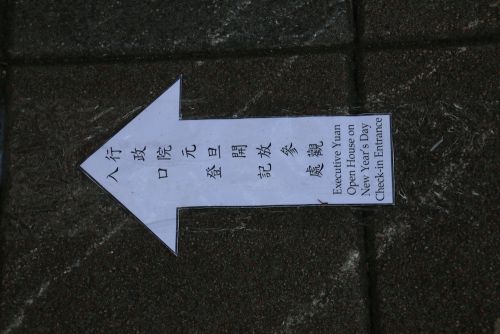 行政院元旦開放參觀
入口登記處
Executive Yuan
Open House on
New Year's Day
Check-in Entrance